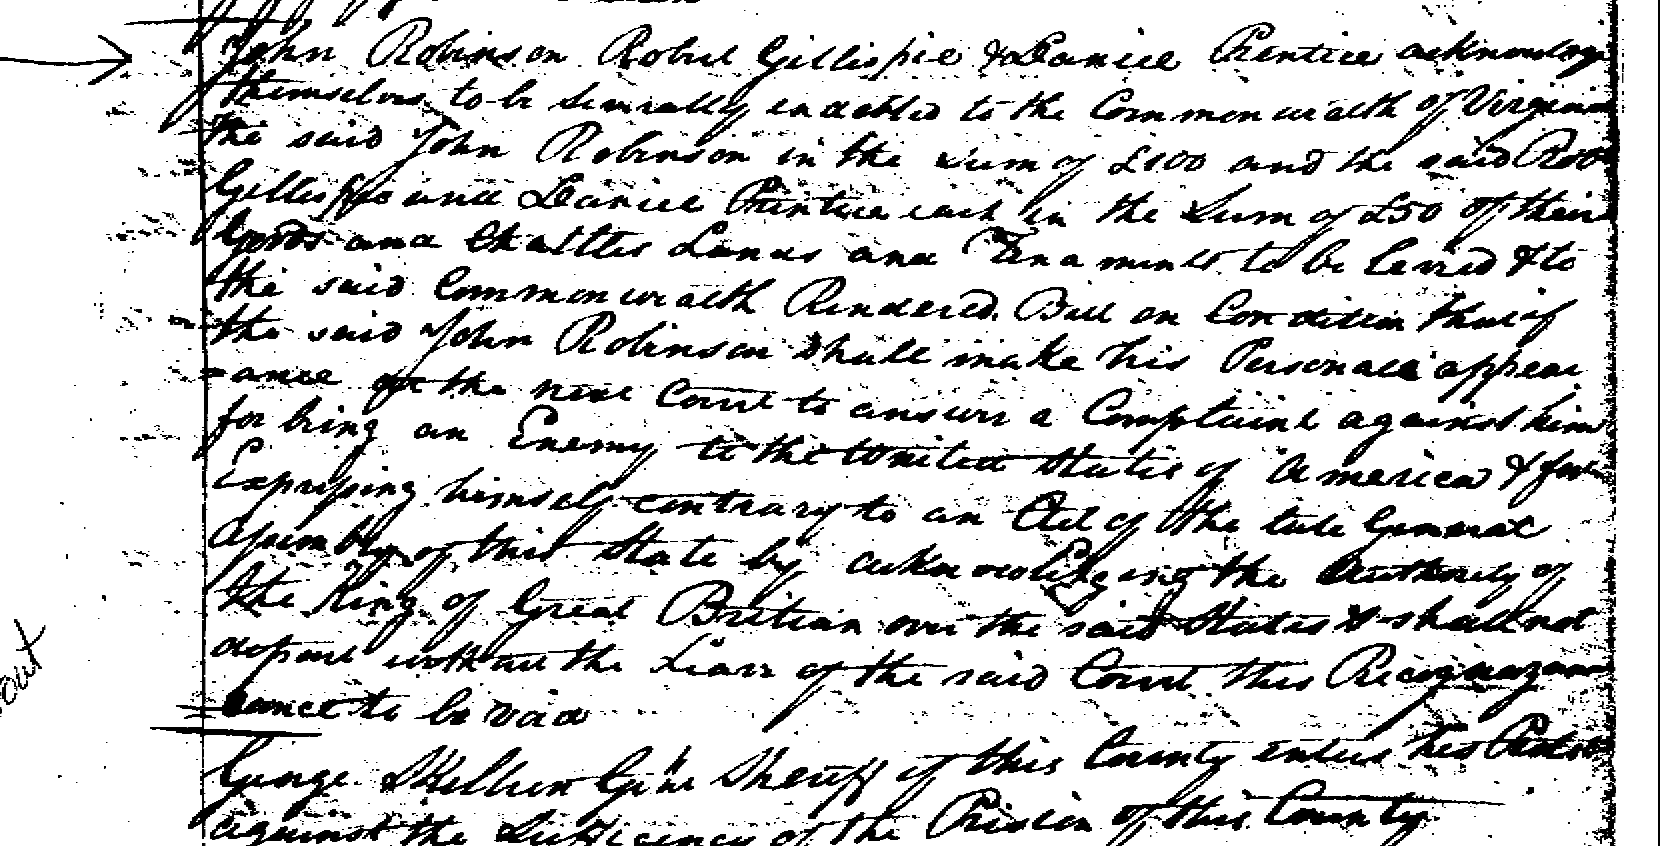 John Robinson Robert Gillispie & Daniel Prentice acknowledge
themselves to be severally indebted to the Commonwealth of Virginia
the said John Robinson in the Sum of £100 and the said Robt
Gillispie and Daniel Prentice each in the Sum of £50 of their
Goods and Chattles Lands and Tenaments to be Levied & to
the said Commonwealth Rendered. But on Condition that if
the said John Robinson Shall make his Personal appear
-ance at the next Court to answer a Complaint against him
for being an Enemy to the United States of America & for
Expressing himself contrary to an Act of the late General
Assembly of this State by acknowledging the Authority of
the King of Great Britian over the said States & shall not
depart without the Leave of the said Court this Recognizan
=zance to be void
out
George Skillern Gent Sheriff of this County enters his Protest
against the Sufficiency of the Prison of this County